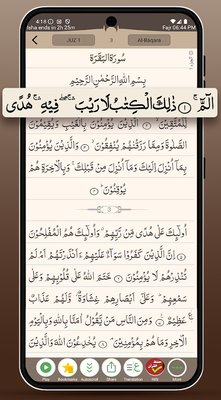 4:18
Fajr 06:44 PM
Isha ends in 2h 25m
JUZ 1
3
Al-Baqara
سُورَةُ الْبَقَرَةِ
بِسْمِ اللّٰهِ الرَّحْمٰنِ الرَّحِيْمِ
الٓمّٓ ۚ ۝١ ذٰلِكَ الْكِتٰبُ لَا رَيْبَ ۛۖ فِيْهِ ۛۚ هُدًى
لِّلْمُتَّقِيْنَ ۝ الَّذِيْنَ يُؤْمِنُوْنَ بِالْغَيْبِ وَيُقِيْمُوْنَ
الصَّلٰوةَ وَمِمَّا رَزَقْنٰهُمْ يُنْفِقُوْنَ ۝ وَالَّذِيْنَ يُؤْمِنُوْنَ
بِمَآ اُنْزِلَ اِلَيْكَ وَمَآ اُنْزِلَ مِنْ قَبْلِكَ ۚ وَبِالْاٰخِرَةِ هُمْ
يُوْقِنُوْنَ ۝
3
اُولٰٓئِكَ عَلٰى هُدًى مِّنْ رَّبِّهِمْ ۙ وَاُولٰٓئِكَ هُمُ الْمُفْلِحُوْنَ
۝ اِنَّ الَّذِيْنَ كَفَرُوْا سَوَآءٌ عَلَيْهِمْ ءَاَنْذَرْتَهُمْ اَمْ لَمْ
تُنْذِرْهُمْ لَا يُؤْمِنُوْنَ ۝ خَتَمَ اللّٰهُ عَلٰى قُلُوْبِهِمْ وَعَلٰى
سَمْعِهِمْ ؕ وَعَلٰٓى اَبْصَارِهِمْ غِشَاوَةٌ ۫ وَّلَهُمْ عَذَابٌ
عَظِيْمٌ ۝ وَمِنَ النَّاسِ مَنْ يَّقُوْلُ اٰمَنَّا بِاللّٰهِ وَبِالْيَوْمِ
الْاٰخِرِ وَمَا هُمْ بِمُؤْمِنِيْنَ ۝ يُخٰدِعُوْنَ اللّٰهَ وَالَّذِيْنَ
Play
Bookmarks
Autoscroll
Share
Translation
Hifz
More